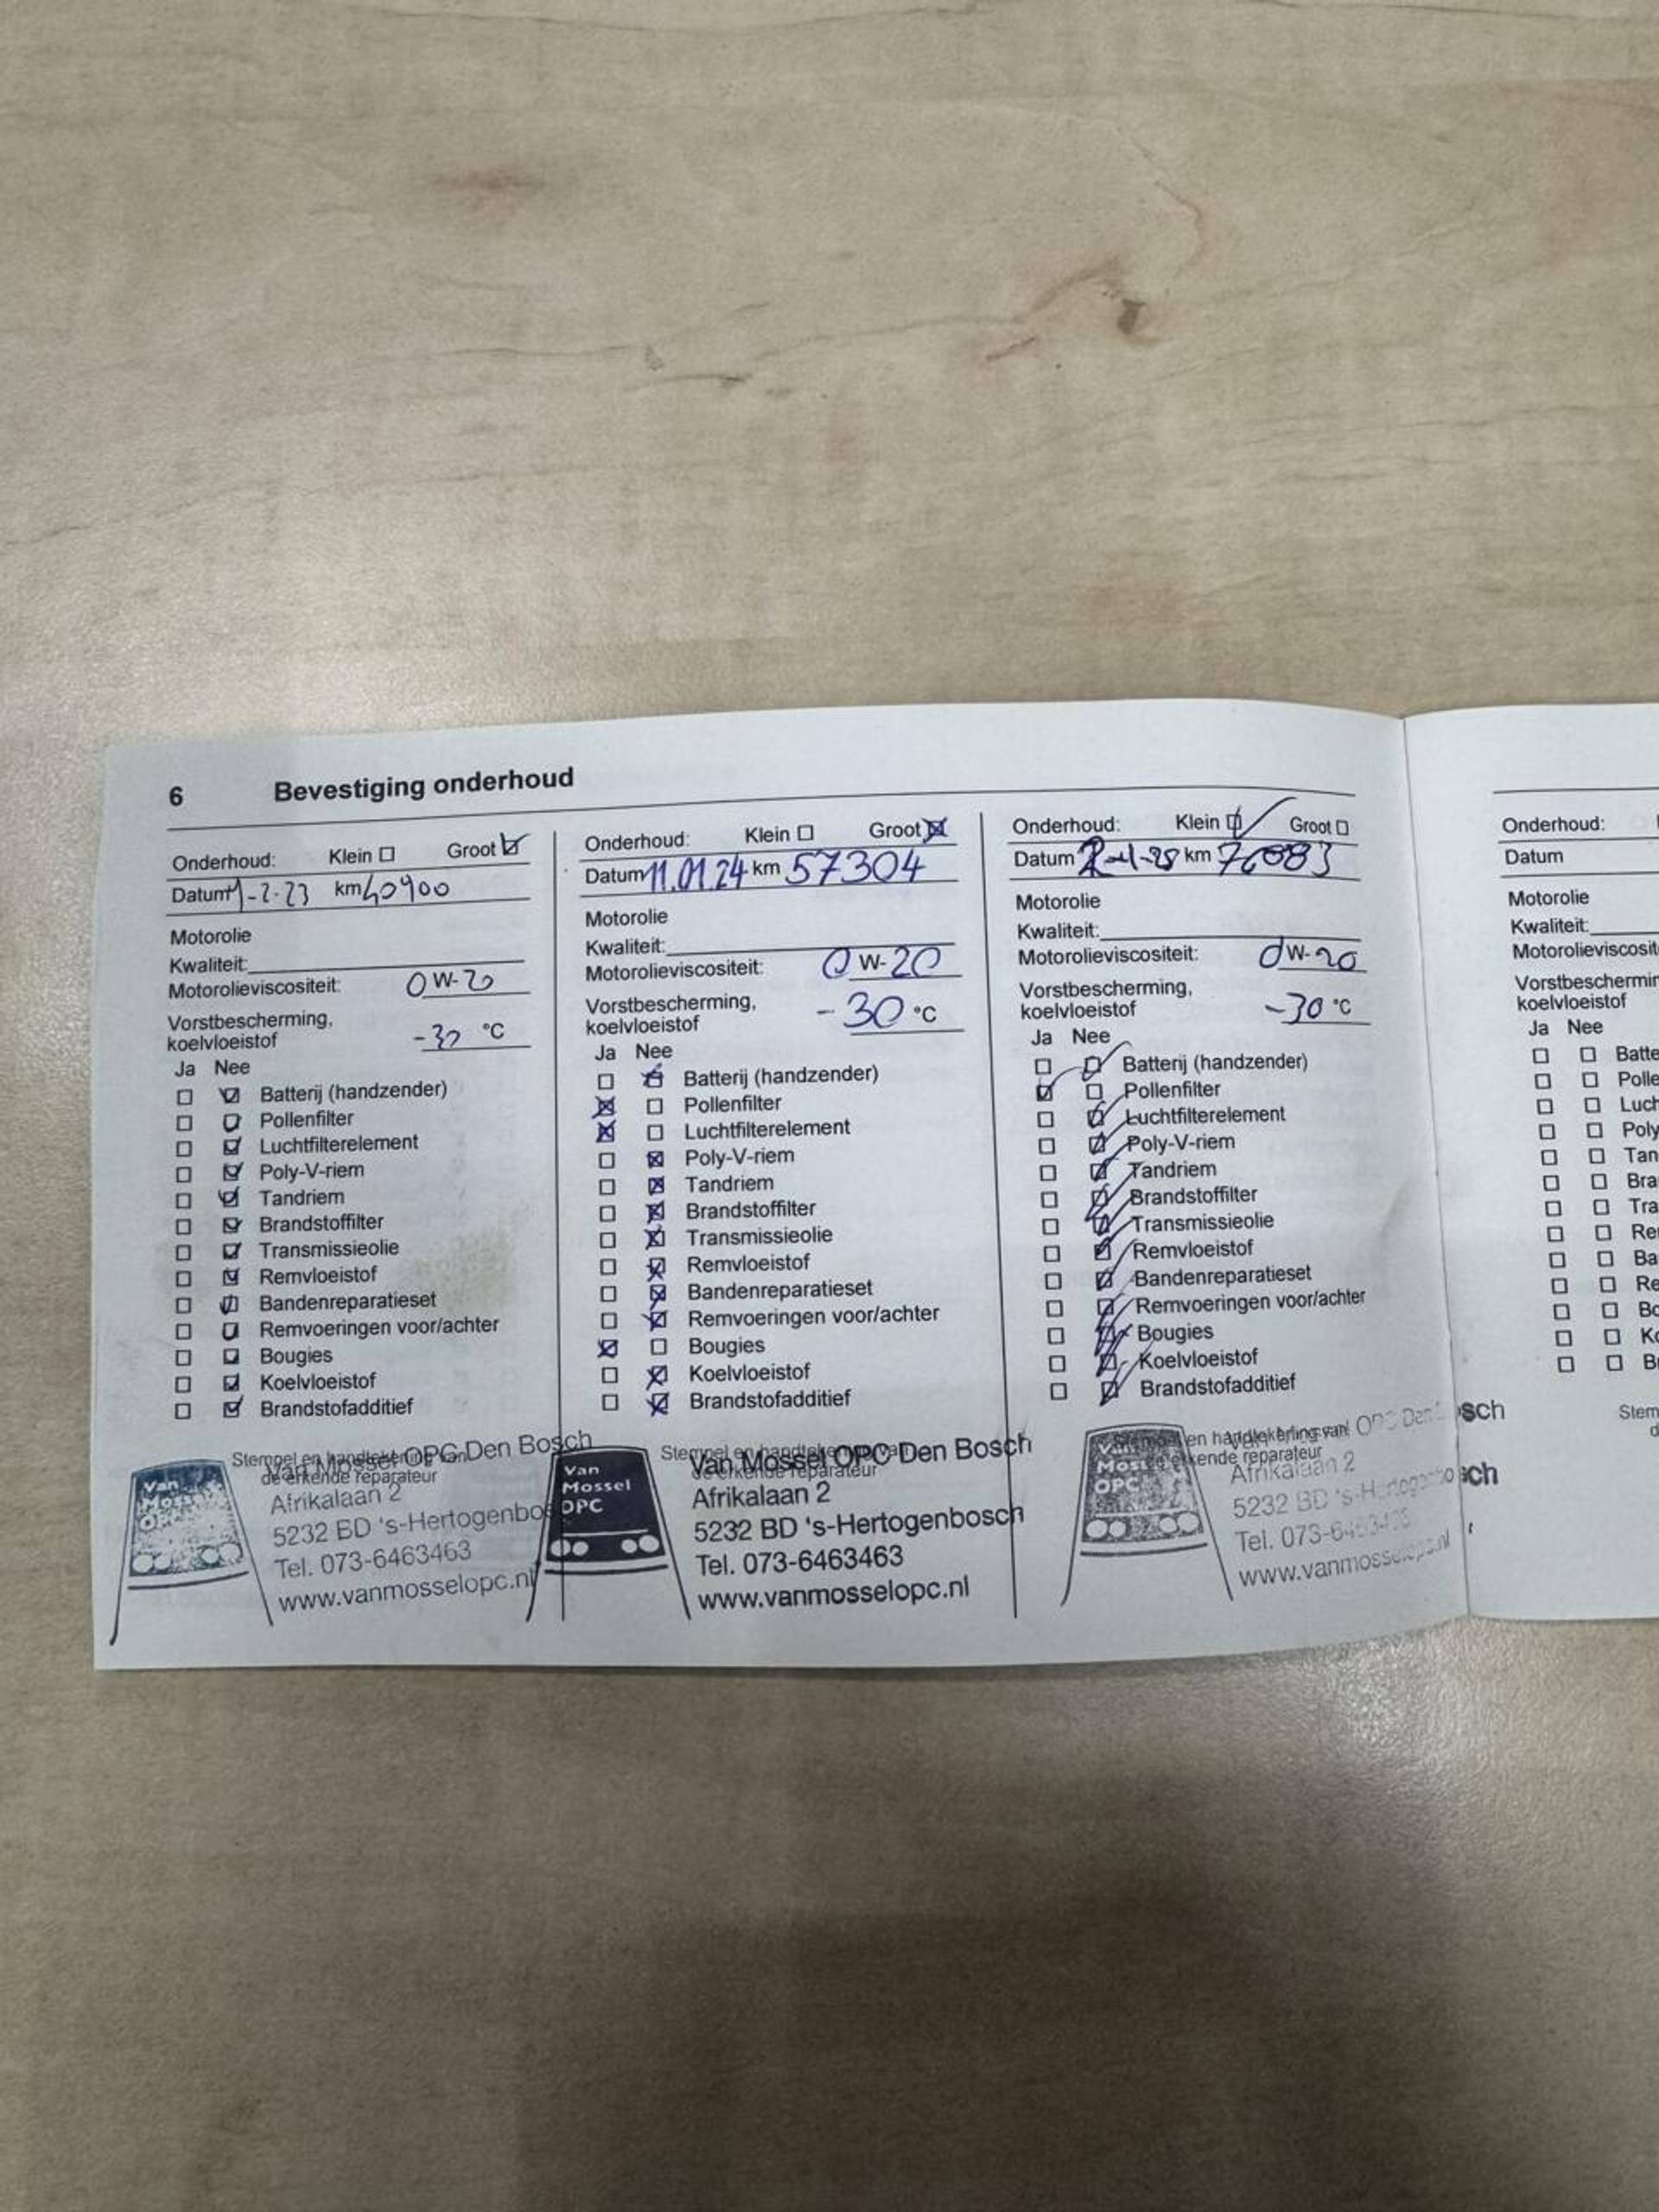 6 Bevestiging onderhoud
Onderhoud: Klein ☐ Groot ☑
Datum 1-2-23 km 40900
Motorolie
Kwaliteit:
Motorolieviscositeit: 0 W-20
Vorstbescherming,
koelvloeistof -30 °C
Ja Nee
☐ ☑ Batterij (handzender)
☐ ☑ Pollenfilter
☐ ☑ Luchtfilterelement
☐ ☑ Poly-V-riem
☐ ☑ Tandriem
☐ ☑ Brandstoffilter
☐ ☑ Transmissieolie
☐ ☑ Remvloeistof
☐ ☑ Bandenreparatieset
☐ ☑ Remvoeringen voor/achter
☐ ☑ Bougies
☐ ☑ Koelvloeistof
☐ ☑ Brandstofadditief
Stempel en handtekening van
de erkende reparateur
Van Mossel OPC
Van Mossel OPC Den Bosch
Afrikalaan 2
5232 BD 's-Hertogenbo
Tel. 073-6463463
www.vanmosselopc.nl
Onderhoud: Klein ☐ Groot ☒
Datum 11.01.24 km 57304
Motorolie
Kwaliteit:
Motorolieviscositeit: 0 W-20
Vorstbescherming,
koelvloeistof -30 °C
Ja Nee
☐ ☒ Batterij (handzender)
☒ ☐ Pollenfilter
☒ ☐ Luchtfilterelement
☐ ☒ Poly-V-riem
☐ ☒ Tandriem
☐ ☒ Brandstoffilter
☐ ☒ Transmissieolie
☐ ☒ Remvloeistof
☐ ☒ Bandenreparatieset
☐ ☒ Remvoeringen voor/achter
☒ ☐ Bougies
☐ ☒ Koelvloeistof
☐ ☒ Brandstofadditief
Stempel en handtekening van
de erkende reparateur
Van
Mossel
OPC
Van Mossel OPC Den Bosch
Afrikalaan 2
5232 BD 's-Hertogenbosch
Tel. 073-6463463
www.vanmosselopc.nl
Onderhoud: Klein ☑ Groot ☐
Datum km
Motorolie
Kwaliteit:
Motorolieviscositeit: 0 W-20
Vorstbescherming,
koelvloeistof -30 °C
Ja Nee
☐ ☑ Batterij (handzender)
☑ ☐ Pollenfilter
☐ ☑ Luchtfilterelement
☐ ☑ Poly-V-riem
☐ ☑ Tandriem
☐ ☑ Brandstoffilter
☐ ☑ Transmissieolie
☐ ☑ Remvloeistof
☐ ☑ Bandenreparatieset
☐ ☑ Remvoeringen voor/achter
☐ ☑ Bougies
☐ ☑ Koelvloeistof
☐ ☑ Brandstofadditief
en handtekening van
erkende reparateur
Van
OPC
Afrikalaan 2
5232 BD
Tel.
sch
sch
Onderhoud:
Datum
Motorolie
Kwaliteit:
Motorolieviscosit
Vorstbeschermin
koelvloeistof
Ja Nee
☐ ☐ Batte
☐ ☐ Polle
☐ ☐ Luch
☐ ☐ Poly
☐ ☐ Tan
☐ ☐ Bra
☐ ☐ Tra
☐ ☐ Re
☐ ☐ Ba
☐ ☐ Re
☐ ☐ Bo
☐ ☐ Ko
☐ ☐ B
Stem
d